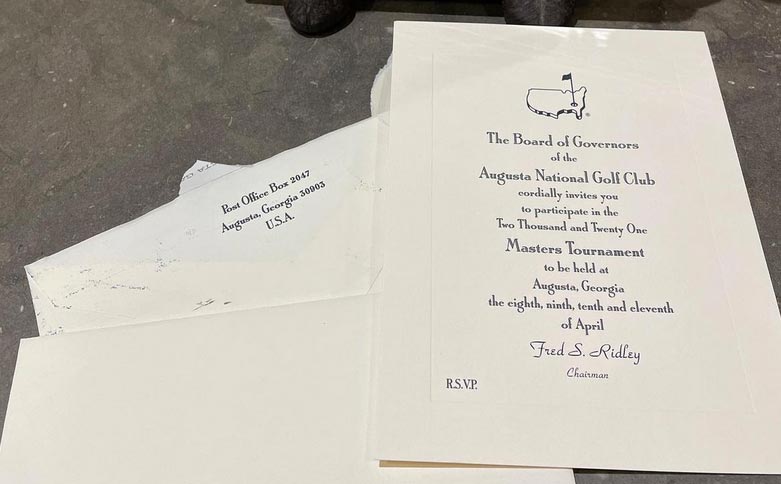 Post Office Box 2047
Augusta, Georgia 30903
U.S.A.
®
The Board of Governors
of the
Augusta National Golf Club
cordially invites you
to participate in the
Two Thousand and Twenty One
Masters Tournament
to be held at
Augusta, Georgia
the eighth, ninth, tenth and eleventh
of April
Fred S. Ridley
Chairman
R.S.V.P.